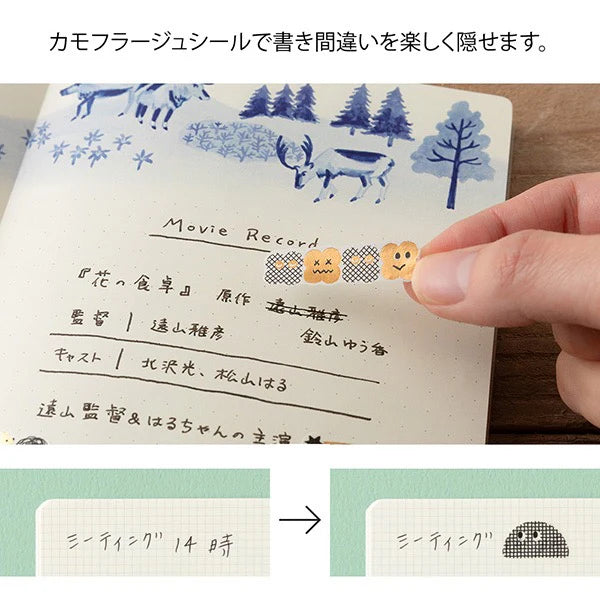 カモフラージュシールで書き間違いを楽しく隠せます。
Movie Record
『花の食卓』 原作 遠山雅彦
監督 | 遠山雅彦 鈴山ゆう香
キャスト | 北沢光、松山はる
遠山監督&はるちゃんの主演
ミーティング 14時
ミーティング